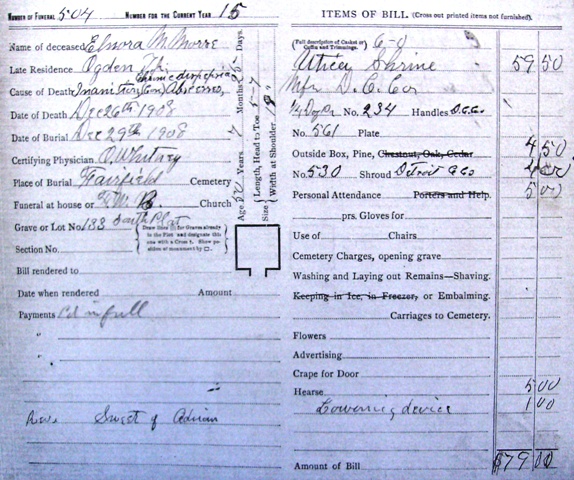 NUMBER OF FUNERAL 504 NUMBER FOR THE CURRENT YEAR 15
Name of deceased Elnora M Morse
Late Residence Ogden
Cause of Death Inanition
Date of Death Dec 26th 1908
Date of Burial Dec 29th 1908
Certifying Physician O. Whitney
Place of Burial Fairfield Cemetery
Funeral at house or Church
Grave or Lot No. 188 South Plat
Draw lines for Graves already in the Plot and designate this one with a Cross †. Show position of monument by □.
Section No.
Bill rendered to
Date when rendered Amount
Payments Pd in full
"
"
"
Rev. Sweet of Adrian
Age Years 7 Months Days.
Length, Head to Toe 5-7
Size Width at Shoulder
ITEMS OF BILL. (Cross out printed items not furnished).
(Full description of Casket or Coffin and Trimmings. 6-0
Shrine 59 50
Mfr D. C. Co
No. 234 Handles D.C.C.
No. 561 Plate
Outside Box, Pine, Chestnut, Oak, Cedar 4 50
No. 530 Shroud Detroit C Co 4 00
Personal Attendance Porters and Help. 5 00
prs. Gloves for
Use of Chairs
Cemetery Charges, opening grave
Washing and Laying out Remains—Shaving.
Keeping in Ice, in Freezer, or Embalming.
Carriages to Cemetery.
Flowers
Advertising
Crape for Door
Hearse 5 00
Lowering device 1 00
Amount of Bill $79 00